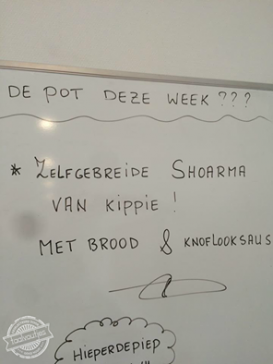 DE POT DEZE WEEK ???
* ZELFGEBREIDE SHOARMA
VAN KIPPIE !
MET BROOD & KNOFLOOKSAUS
HIEPERDEPIEP
taalvoutjes